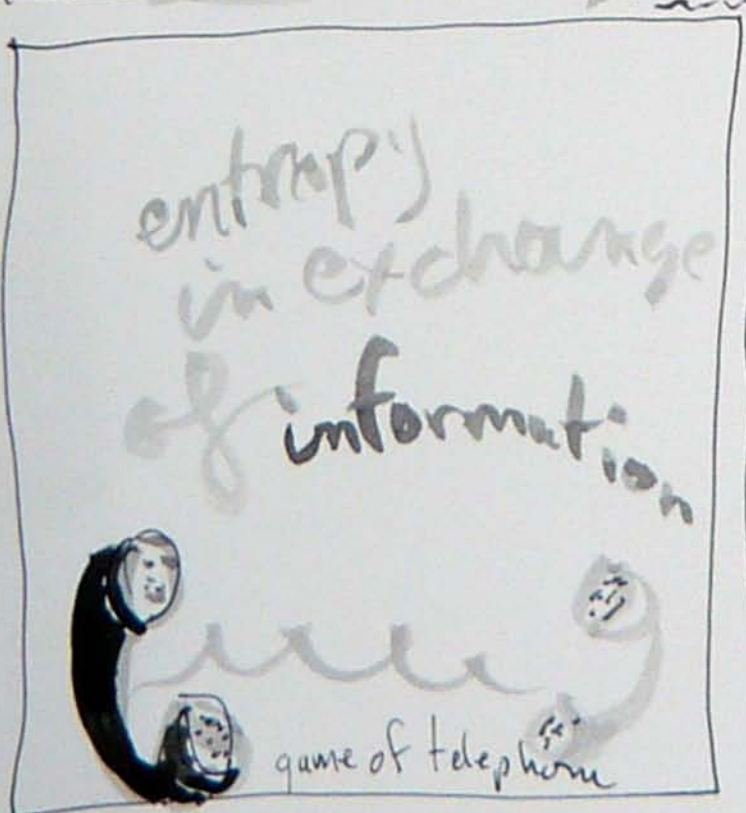 entropy
in exchange
of information
game of telephone